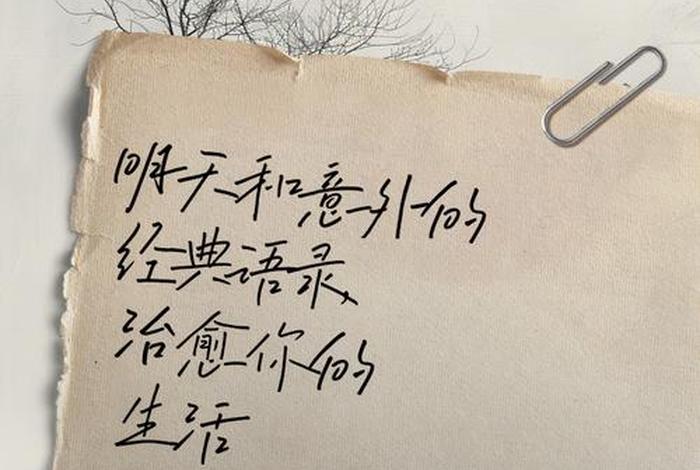 明天和意外的
经典语录
治愈你的
生活